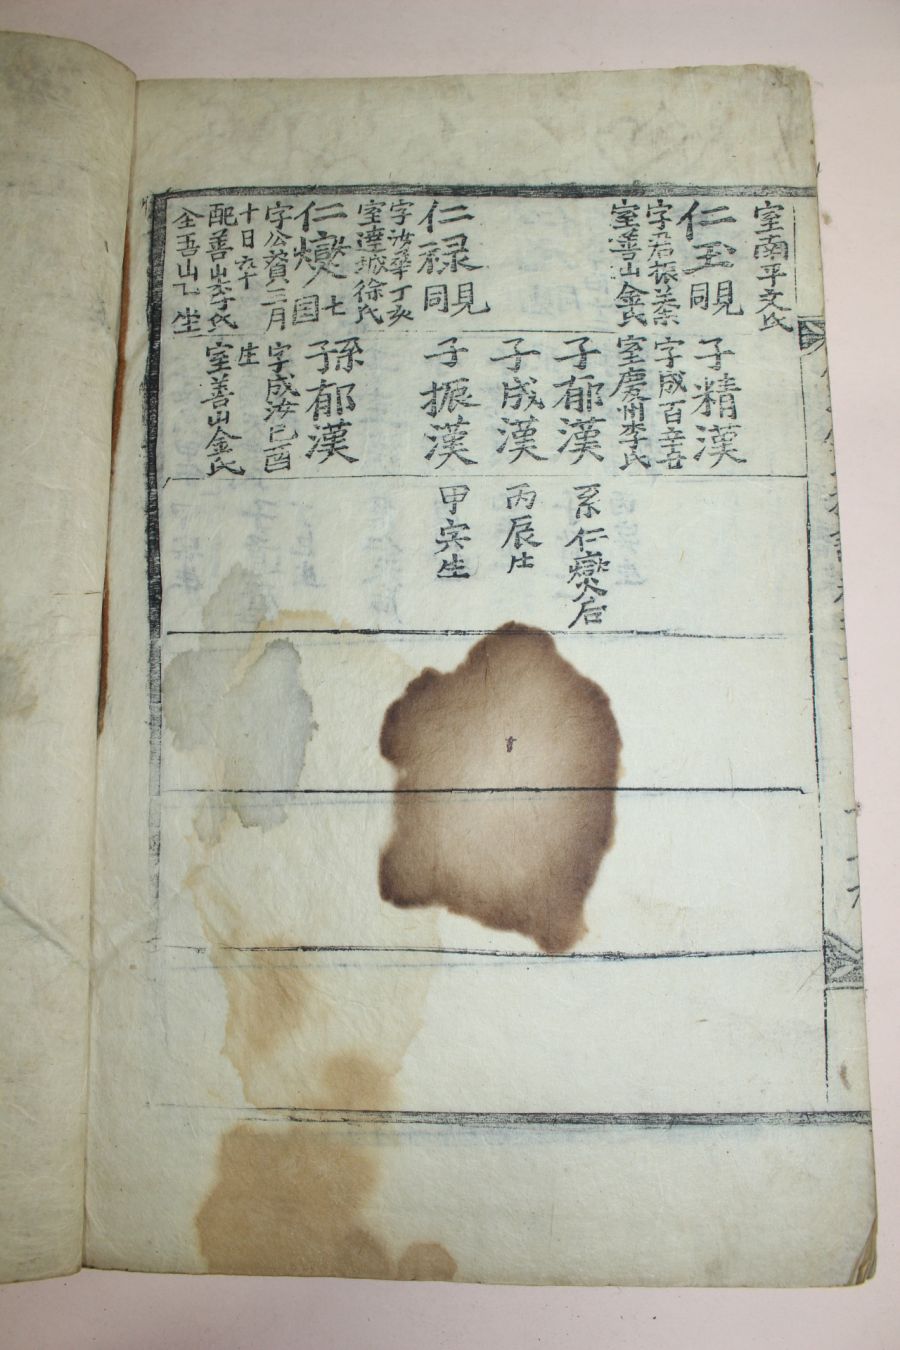 室南平文氏
仁玉
同見
字君振癸
室善山金氏
仁祿
同見
字汝華丁亥
室達城徐氏
仁燮
七
字公贊三月
十日六十
配善山李氏
全吾山乙坐
子精漢
字成百辛
室慶州李氏
子郁漢
子成漢
子振漢
系子郁漢
字成汝己酉
生
室善山金氏
系仁燮后
丙辰生
甲寅生